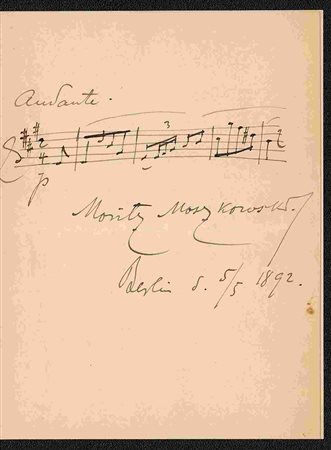 Andante.
2
4
3
p
Moritz Moszkowski.
Berlin d. 5/5 1892.